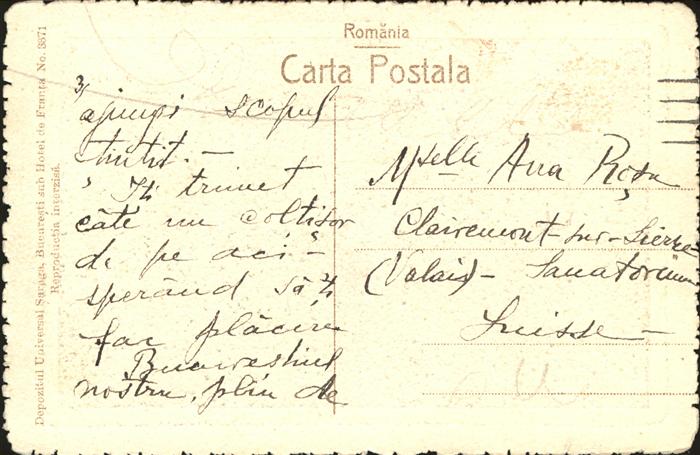 România
Carta Postala
Depozitul Universal Șaraga, Bucuresti sub Hotel de Franța No. 3371
Reproductia interzisă.
3,
ajungi scopul
țintit. —
Iți trimet
câte un colțișor
de pe aci —
sperând să-ți
fac plăcere
Bucureștiul
nostru, plin de
Mselle Ana Roșu
Clairemont sur-Sierre
(Valais) — Sanatorium
Suisse —